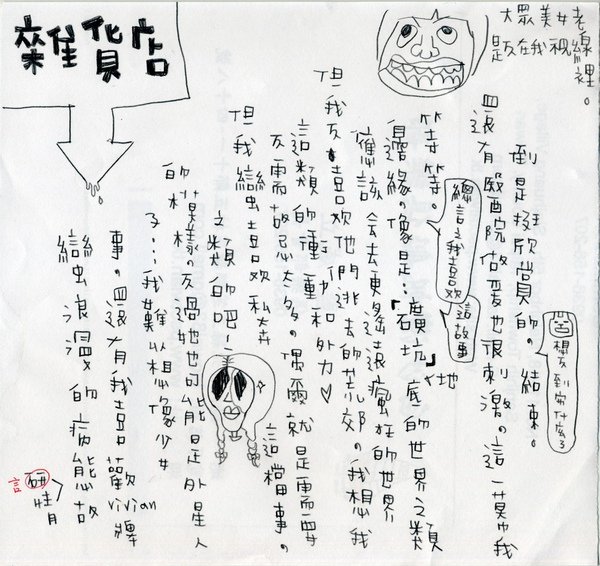 雜貨店
大眾美女老
是不在我視線裡。
倒是挺欣賞的結束。
還有醫院做愛也很刺激の這一幕我
想不到寫什麼了
等等
總言之我喜歡這故事
邊緣の像是…「礦坑」底的世界之類
地
應該會去更遙遠瘋狂的世界
但我不喜歡他們逃去的荒郊の我想我
這類的衝動和外力♡
太多の偶爾就是需要
但我蠻喜歡私奔這檔事の
之類的吧!
的模樣の不過她也可能是外星人
了…我難以想像少女
事の還有我喜歡vivian牌
蠻浪漫的病態故